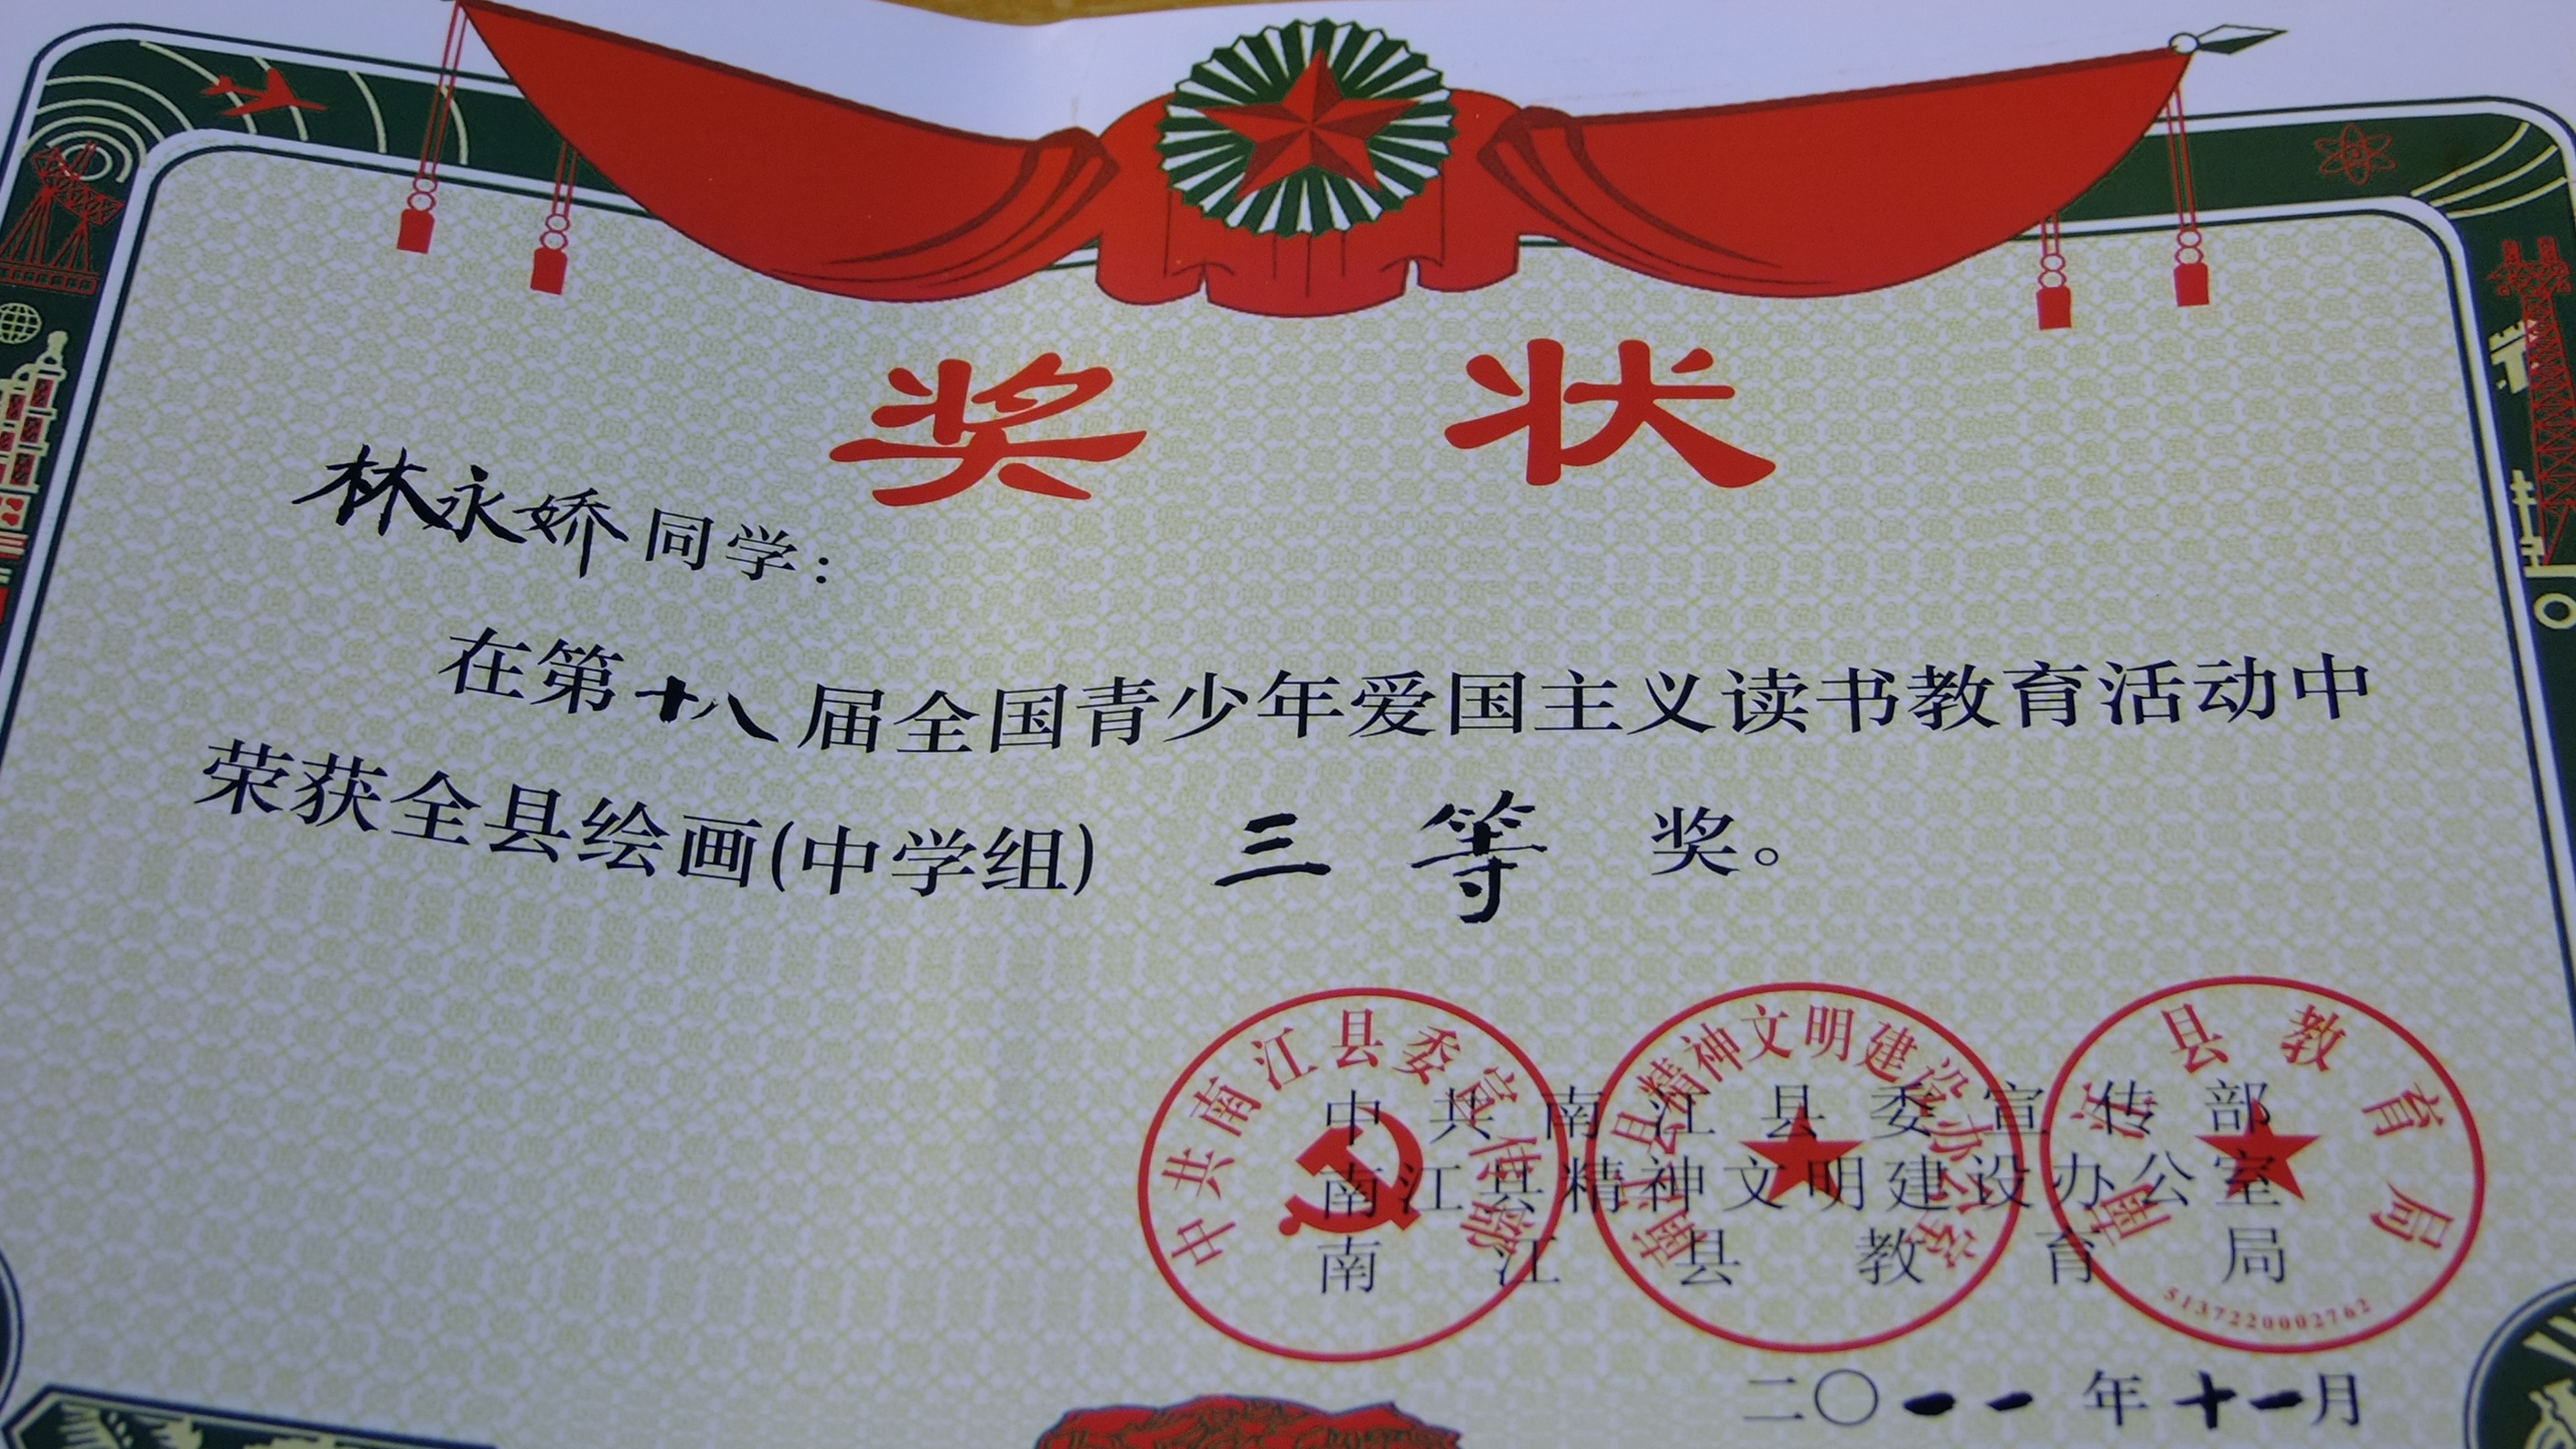 奖状
林永娇同学：
在第十八届全国青少年爱国主义读书教育活动中
荣获全县绘画(中学组) 三等奖。
中共南江县委宣传部
南江县精神文明建设办公室
南江县教育局
二〇一一年十一月
中共南江县委宣传部
南江县精神文明建设办公室
南江县教育局
5137220002762